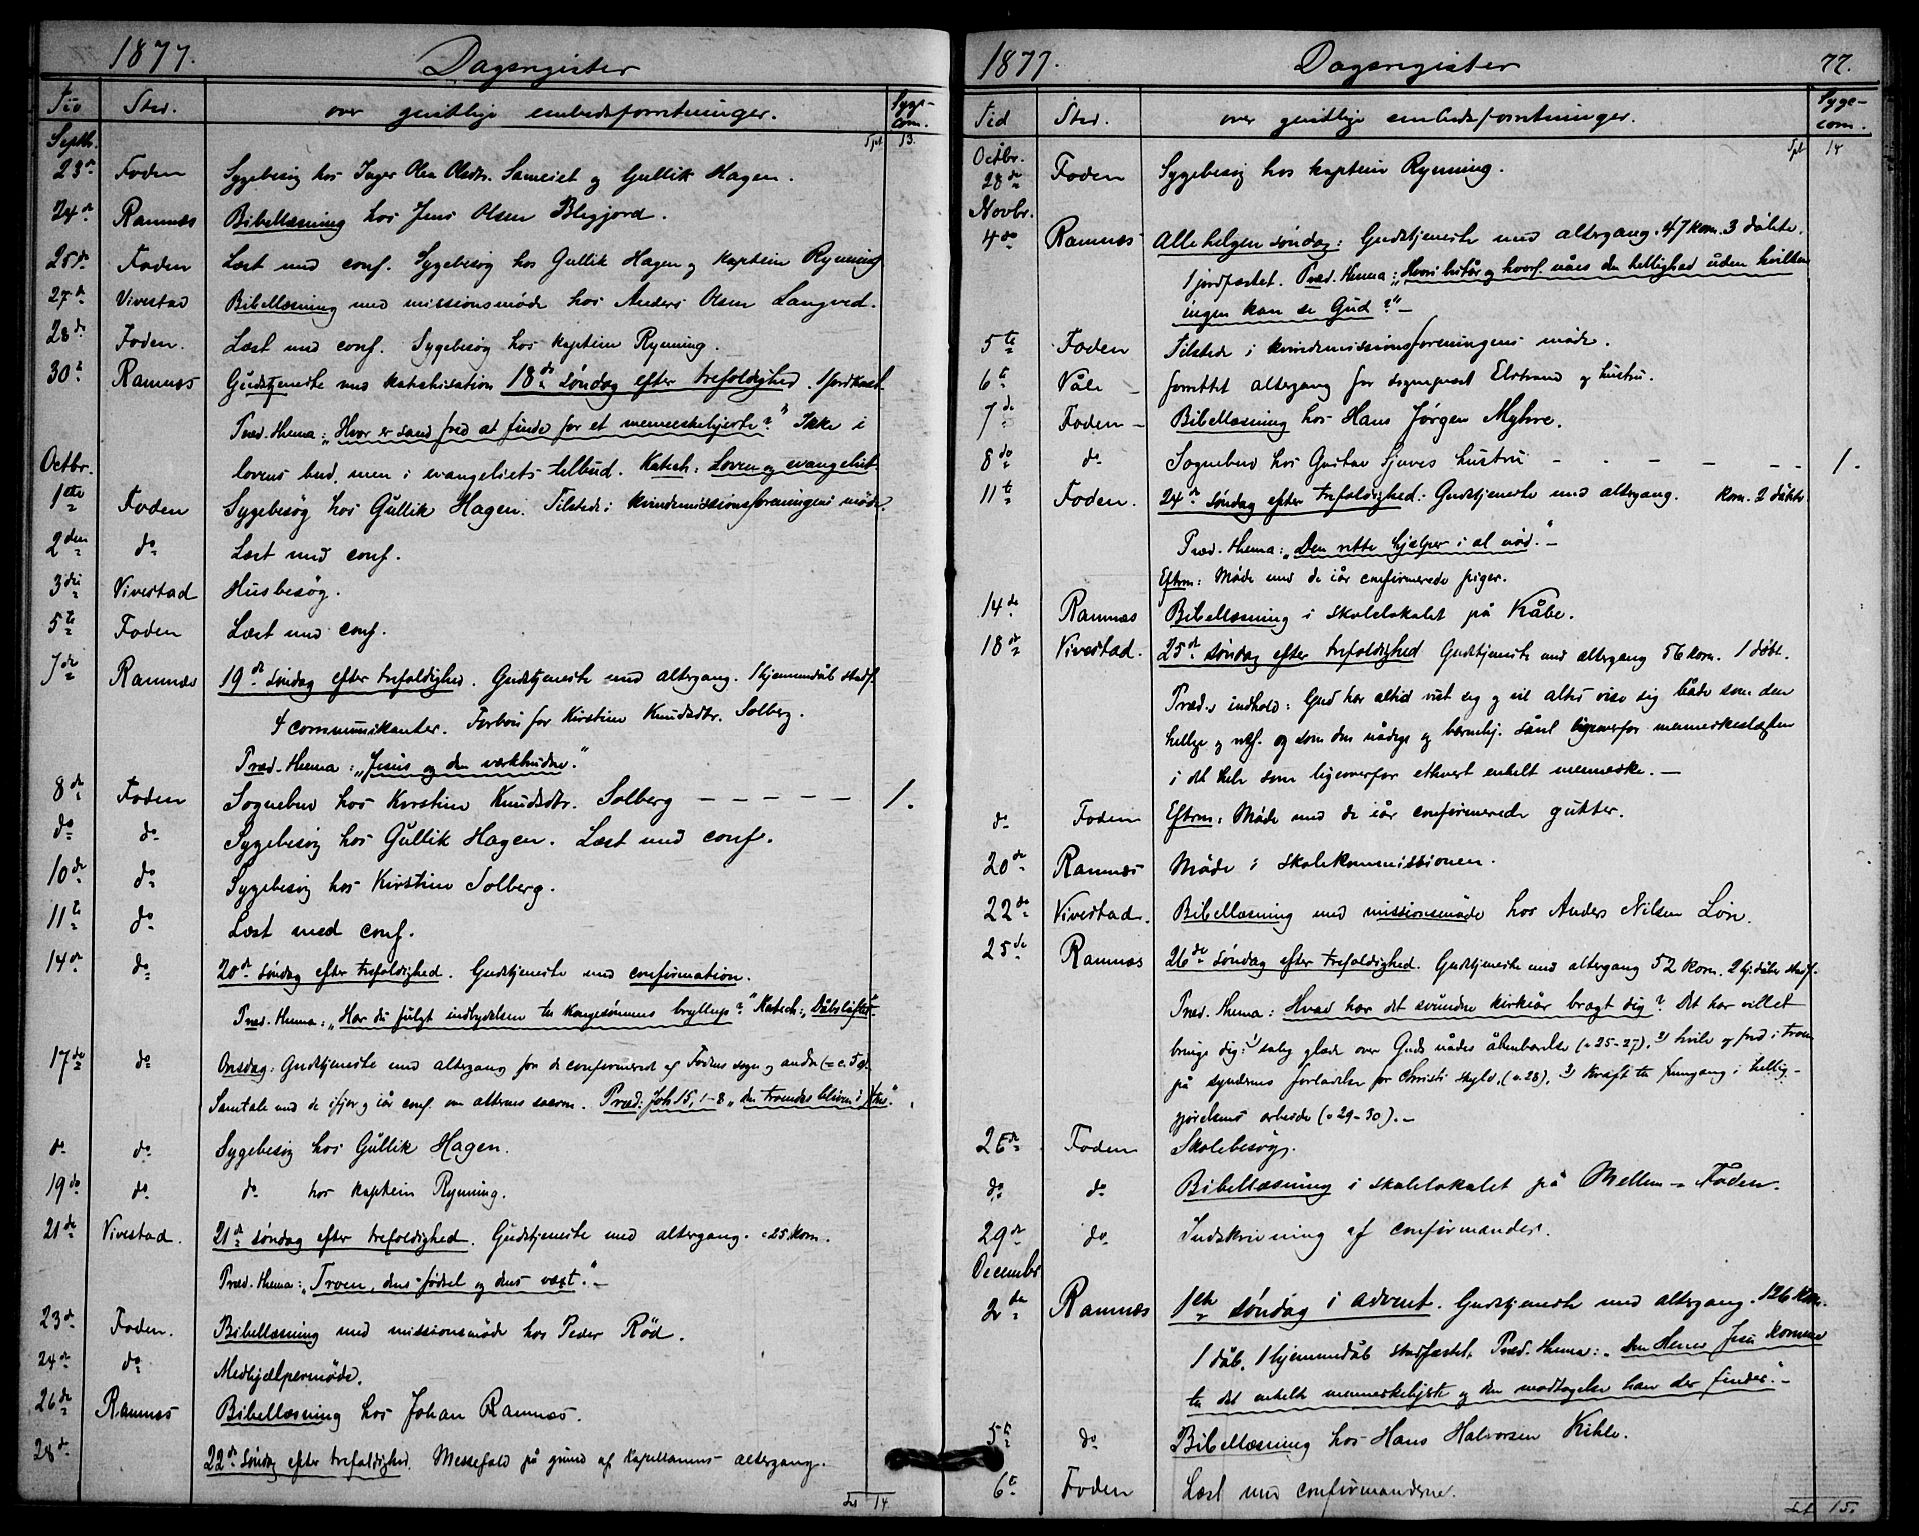 1877.
Dagsregister
Tid Sted. over geistlige embedsforretninger. Syge-com.
Septbr. Tpt 13.
23de Foden Sygebesøg hos Inger Olea Olsdtr. Sameiet og Gullik Hagen.
24de Ramnæs Bibellæsning hos Jens Olsen Blegjord.
25de Foden Læst med conf. Sygebesøg hos Gullik Hagen og kaptein Rynning
27de Vivestad Bibellæsning med missionsmøde hos Anders Olsen Langved.
28de Foden. Læst med conf. Sygebesøg hos kaptein Rynning.
30te Ramnæs Gudstjeneste med katekisation 18de søndag efter trefoldighed. 1 jordkast.
Præd. thema: „Hvor er sand fred at finde for et menneskehjerte?" Ikke i
Octbr. lovens bud, men i evangeliets tilbud. Katech: Loven og evangeliet
1ste Foden Sygebesøg hos Gullik Hagen. Tilstede i kvindemissionsforeningens møde.
2den do Læst med conf.
3die Vivestad Husbesøg.
5te Foden Læst med conf.
7de Ramnæs 19de søndag efter trefoldighed. Gudstjeneste med altergang. 1 hjemmedåb stadf.
4 communikanter. Forbøn for Kirstine Knudsdtr. Solberg.
Præd.-thema: „Jesus og den værkbrudne."
8de Foden Sognebud hos Kirstine Knudsdtr. Solberg – – – – – 1.
do do Sygebesøg hos Gullik Hagen. Læst med conf.
10de do Sygebesøg hos Kirstine Solberg.
11te do Læst med conf.
14de do 20de søndag efter trefoldighed. Gudstjeneste med confirmation.
Præd. thema: „Har du fulgt indbydelsen til kongesønnens bryllup?" Katech: „Dåbsløftet".
17de do Onsdag: Gudstjeneste med altergang for de confirmerede af Fodens sogn og andre (= c. 5
Samtale med de ifjor og iår conf. om alterens sacram. Præd: Joh 15, 1-8 „de troendes bliven i Xtus."
do do Sygebesøg hos Gullik Hagen.
19de do do hos kaptein Rynning.
21de Vivestad. 21de søndag efter trefoldighed. Gudstjeneste med altergang. 25 kom.
Præd. thema: „Troen, dens fødsel og dens vext."–
23de Foden. Bibellæsning med missionsmøde hos Peder Rød.
24de do Medhjælpermøde.
26de Ramnæs Bibellæsning hos Johan Ramnæs.
28de 22de søndag efter trefoldighed. Messefald på grund af kapellanens altergang.
Lat. 14
1877.
Dagsregister
77.
Tid Sted. over geistlige embedsforretninger. Syge-com.
Octbr. Tpt 14
28de Foden Sygebesøg hos kaptein Rynning.
Novbr.
4de Ramnæs Allehelgensøndag: Gudstjeneste med altergang. 47 kom. 3 døbte.
1 jordfæstet. Præd. thema: „Hvori består og hvorf. nåes den hellighed uden hvilken
ingen kan se Gud?"–
5te Foden Tilstede i kvindemissionsforeningens møde.
6te Våle – forrettet altergang for sognepræst Elstrand og hustru.
7de Foden – Bibellæsning hos Hans Jørgen Myhre.
8de do Sognebud hos Gustav Sjuves hustru – – – – – 1.
11te Foden. 24de søndag efter trefoldighed: Gudstjeneste med altergang. kom. 2 døbte
Præd. thema: „Den rette hjælper i al nød."–
Eftrm: Møde med de iår confirmerede piger.
14de Ramnæs Bibellæsning i skolelokalet på Kåbe.
18de Vivestad. 25de søndag efter trefoldighed Gudstjeneste med altergang 56 kom. 1 døbt.
Præd.s indhold: Gud har altid vist sig og vil altid vise sig både som den
hellige og retf. og som den nådige og barmhj. såvel ligeoverfor menneskeslægten
i det hele som ligeoverfor ethvert enkelt menneske. –
do Foden Eftrm: Møde med de iår confirmerede gutter.
20de Ramnæs Møde i skolekommissionen.
22de Vivestad. Bibellæsning med missionsmøde hos Anders Nilsen Løn.
25de Ramnæs 26de søndag efter trefoldighed. Gudstjeneste med altergang 52 kom. 2 hj.dåber stadf.
Præd. thema: Hvad har det svundne kirkeår bragt dig? Det har villet
bringe dig: 1) salig glæde over Guds nådes åbenbarelse (v 25-27). 2) hvile og fred i troen
på syndernes forladelse for Christi skyld, (v. 28), 3) kraft til fremgang i hellig-
gjørelsens arbeide (v 29-30). –
26de Foden Skolebesøg.
do do Bibellæsning i skolelokalet på Mellem-Foden.
29de do Indskrivning af confirmander.
December
2de Ramnæs 1ste søndag i advent. Gudstjeneste med altergang. 126 kom.
1 dåb. 1 hjemmedåb stadfæstet. Præd. thema: „den Herres Jesu komme
til det enkelte menneskehjerte og den modtagelse han der finder."–
5te do Bibellæsning hos Hans Halvorsen Kihle.
6te Foden Læst med confirmanderne.
Lat. 15.